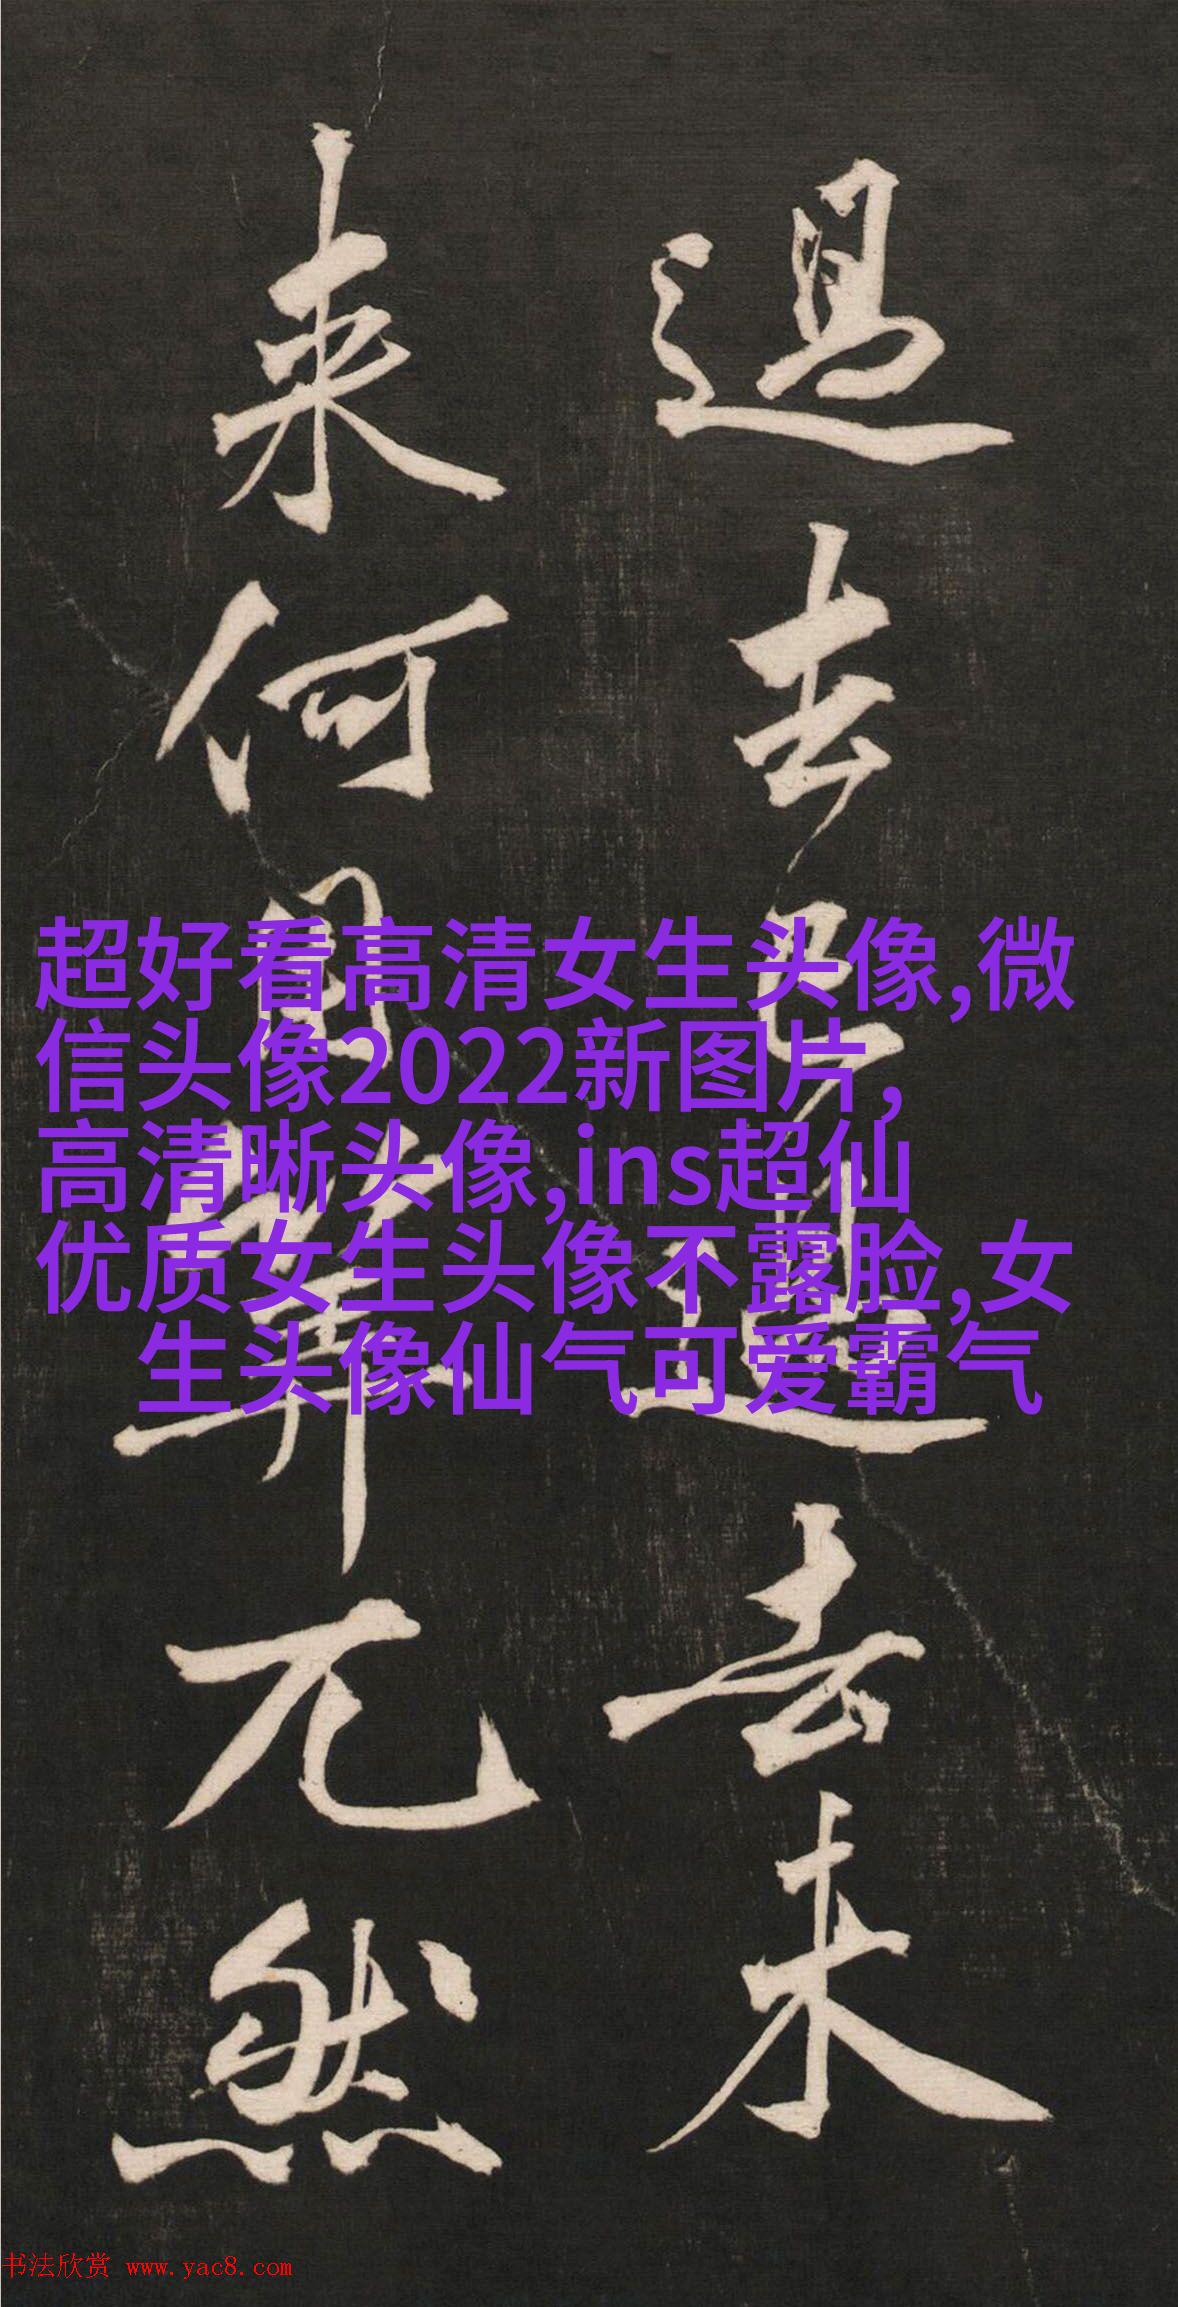 過去已過去未
来何用筭兀然
超好看高清女生头像,微
信头像2022新图片,
高清晰头像,ins超仙
优质女生头像不露脸,女
生头像仙气可爱霸气
书法欣赏 www.yac8.com